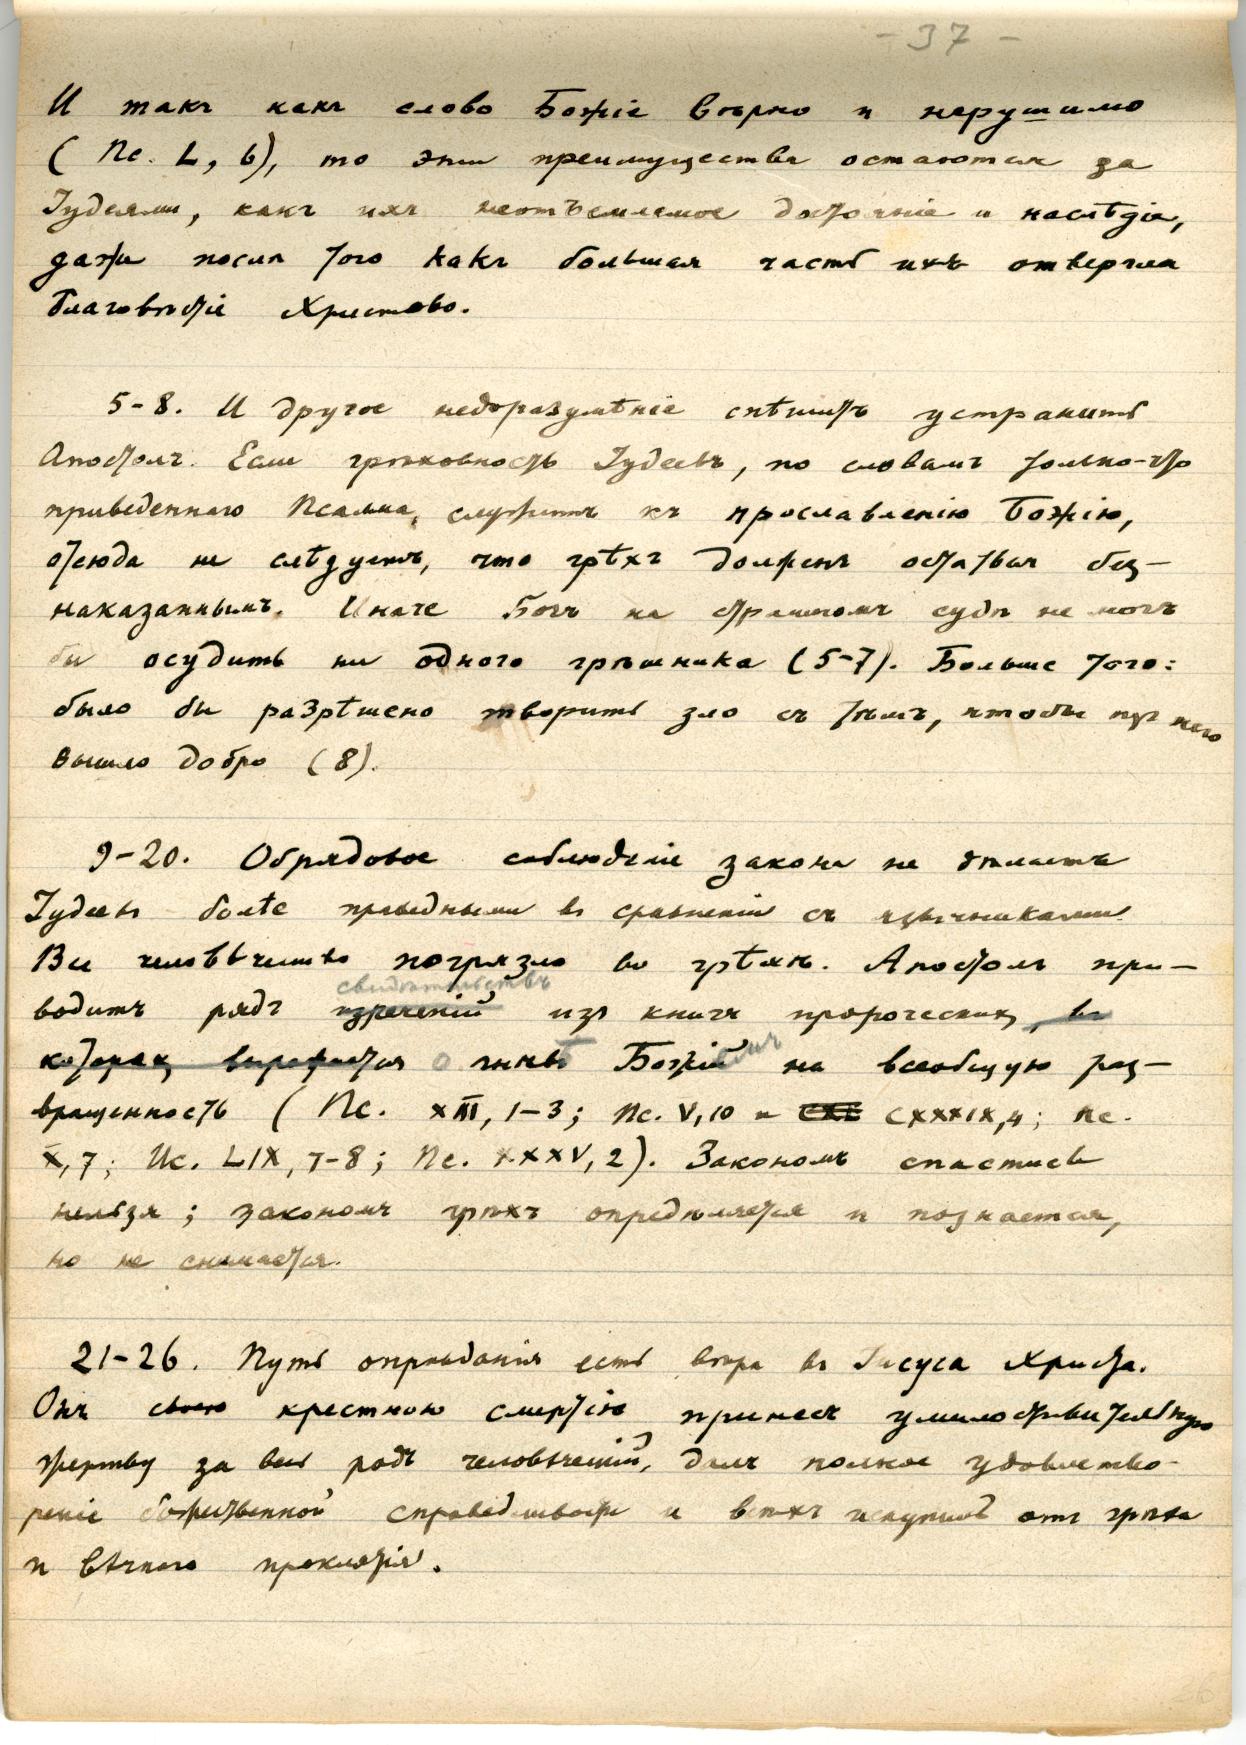 - 37 -
И такъ какъ слово Божіе вѣрно и нерушимо
( Пс. L, 6), то эти преимущества остаются за
Іудеями, какъ ихъ неотъемлемое достояніе и наслѣдіе,
даже послѣ того какъ большая часть ихъ отвергла
благовѣстіе Христово.
5-8. И другое недоразумѣніе спѣшитъ устранить
Апостолъ. Если грѣховность Іудеевъ, по словамъ только-что
приведеннаго Псалма, служитъ къ прославленію Божію,
отсюда не слѣдуетъ, что грѣхъ долженъ остаться без-
наказаннымъ. Иначе Богъ на страшномъ судѣ не могъ
бы осудить ни одного грѣшника (5-7). Больше того:
было бы разрѣшено творить зло съ тѣмъ, чтобы изъ него
вышло добро (8).
9-20. Обрядовое соблюденіе закона не дѣлаетъ
Іудеевъ болѣе праведными въ сравненіи съ язычниками.
Все человѣчество погрязло во грѣхѣ. Апостолъ при-
свидѣтельствъ
водитъ рядъ изреченій изъ книгъ пророческихъ, въ
которыхъ выражается о гнѣвѣ Божіемъ на всеобщую раз-
вращенность (Пс. XIII, 1-3; Пс. V, 10 и CXXXIX, 4; Пс.
X, 7; Ис. LIX, 7-8; Пс. XXXV, 2). Закономъ спастись
нельзя; закономъ грѣхъ опредѣляется и познается,
но не снимается.
21-26. Путь оправданія есть вѣра въ Іисуса Христа.
Онъ своею крестною смертію принесъ умилостивительную
жертву за весь родъ человѣческій, далъ полное удовлетво-
реніе божественной справедливости и всѣхъ искупилъ отъ грѣха
и вѣчнаго проклятія.